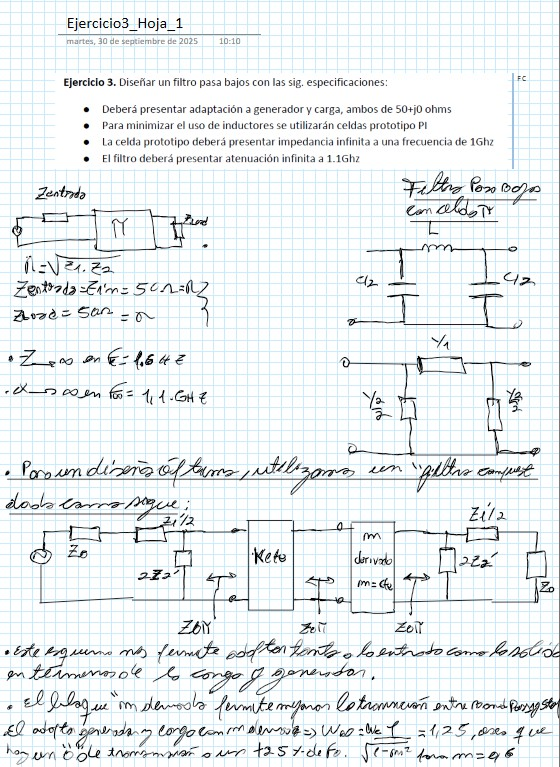 Ejercicio3_Hoja_1
martes, 30 de septiembre de 2025 10:10
FC
Ejercicio 3. Diseñar un filtro pasa bajos con las sig. especificaciones:
• Deberá presentar adaptación a generador y carga, ambos de 50+j0 ohms
• Para minimizar el uso de inductores se utilizarán celdas prototipo PI
• La celda prototipo deberá presentar impedancia infinita a una frecuencia de 1Ghz
• El filtro deberá presentar atenuación infinita a 1.1Ghz
Zentrada
π
Zload
Filtro Pasa Bajo
con celda π
L
C/2
C/2
= √Z1.Z2
Zentrada = = 50Ω =
Zload = 50Ω =
Y1
Y2/2
Y2/2
• Z → ∞ en
• α → ∞ en = 1,1 GHZ
• Para un diseño utilizamos un "filtro
como sigue:
Z0
Z1'/2
2Z2'
Kcte
m
derivado
m=cte
2Z2'
Z1'/2
Z0
Z0π
Z0π
Z0π
• Este esquema nos permite tanto la entrada como la salida
en terminos de la carga y generador.
• El bloque "m derivado permite mejorar la transición entre
El generador y carga con m derivado => = 1,25, osea que
hay un "0" de transmision a un +25% de √1-m² para m=0,6